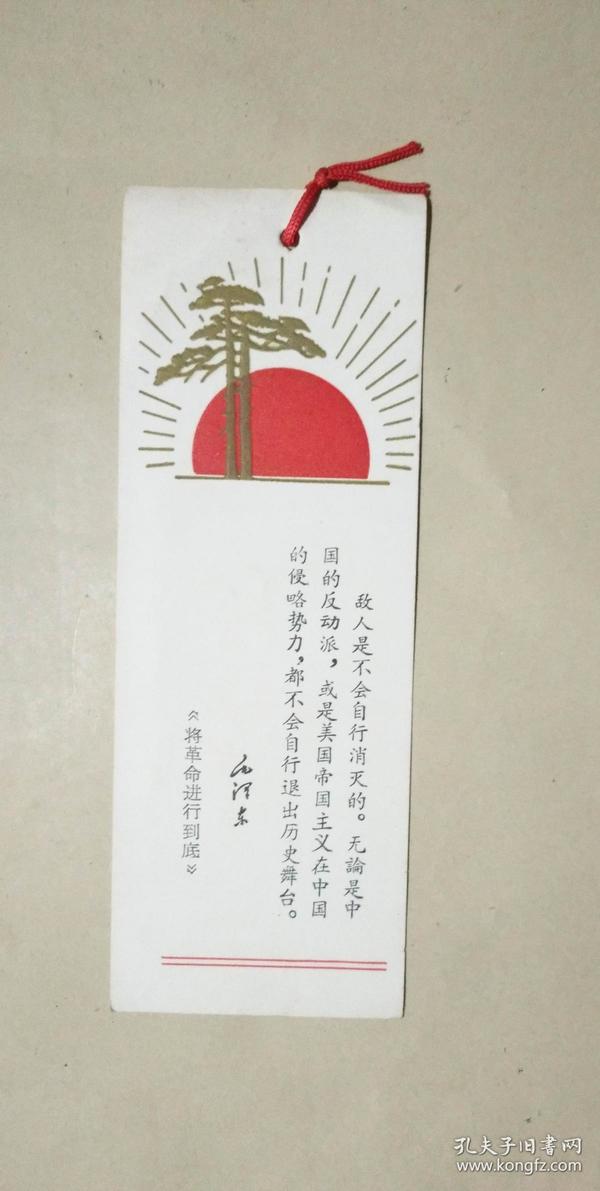 敌人是不会自行消灭的。无論是中
国的反动派，或是美国帝国主义在中国
的侵略势力，都不会自行退出历史舞台。
毛泽东
《将革命进行到底》
孔夫子旧書网
www.kongfz.com